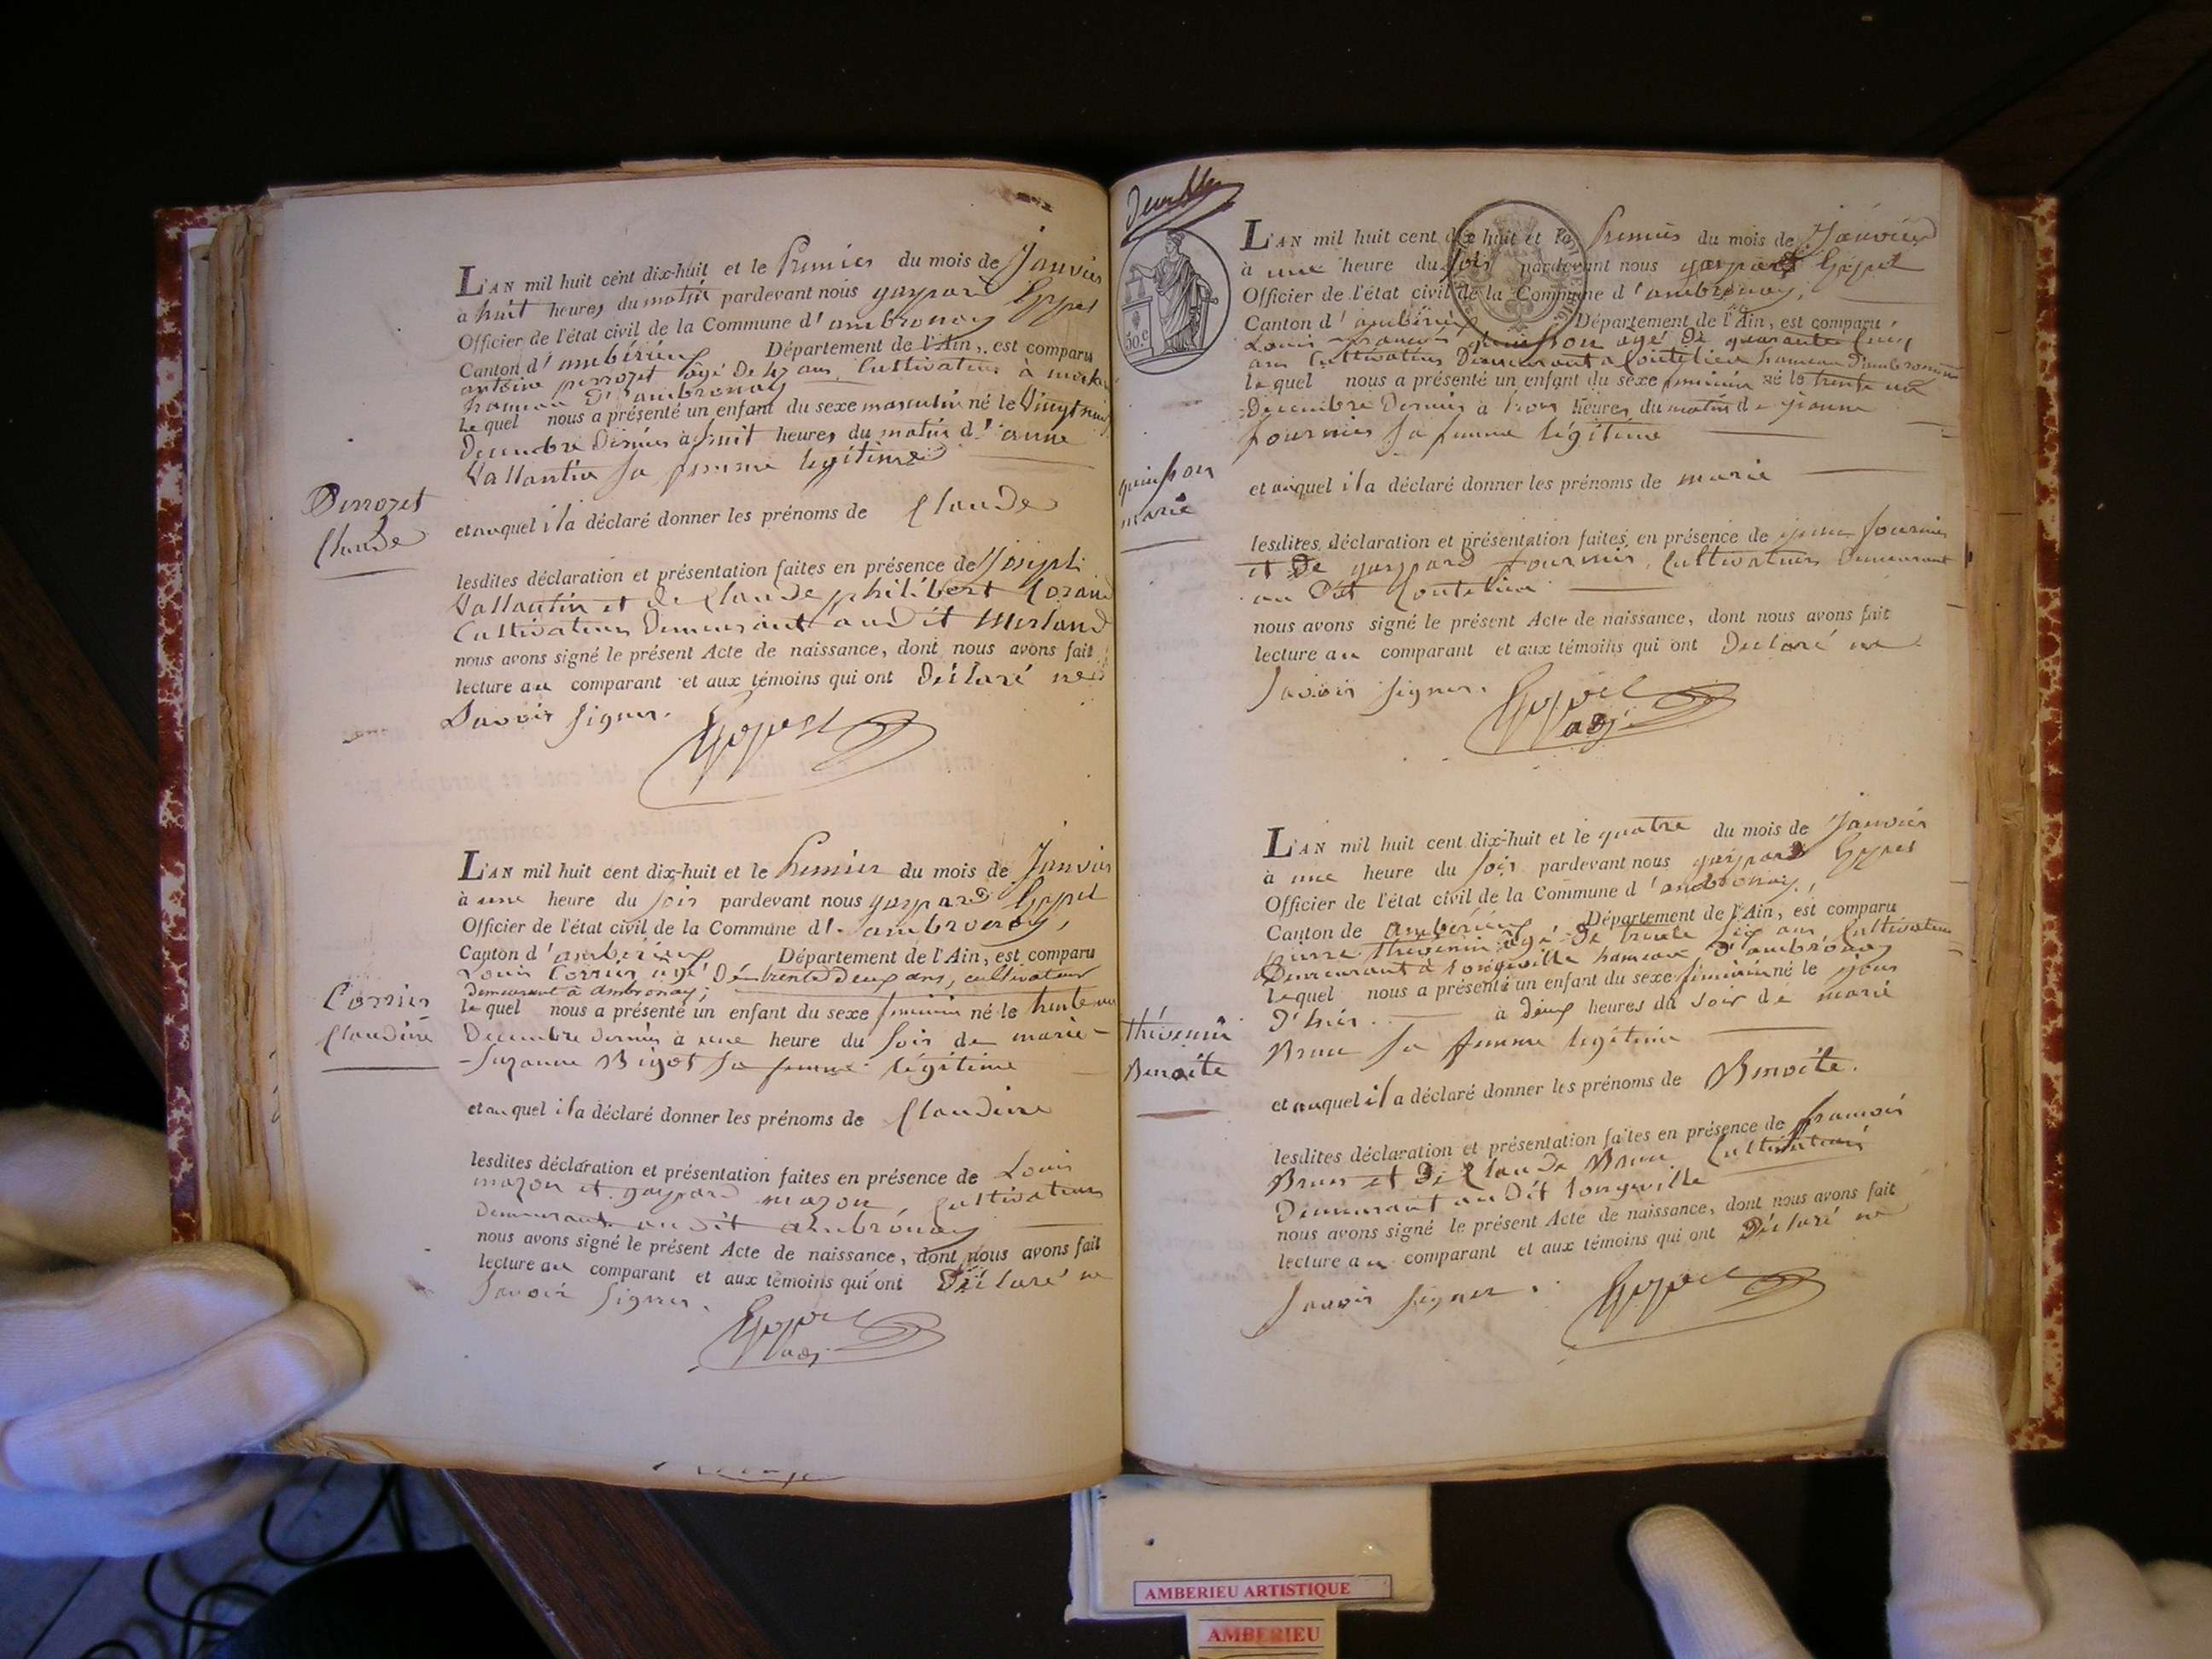 L'AN mil huit cent dix-huit et le premier du mois de Janvier
à huit heures du matin pardevant nous gaspard
Officier de l'état civil de la Commune d'ambronay
Canton d'ambérieux Département de l'Ain, est comparu
antoine perrozet agé de 47 ans Cultivateur à
hameau d'ambronay
lequel nous a présenté un enfant du sexe masculin né le vingt neuf
Decembre Dernier à huit heures du matin d'anne
Vallantin sa femme legitime
Perrozet
Claude
et auquel il a déclaré donner les prénoms de Claude
lesdites déclaration et présentation faites en présence de Joseph
Vallantin et de Claude philibert
Cultivateurs Demeurant audit Merland
nous avons signé le présent Acte de naissance, dont nous avons fait
lecture au comparant et aux témoins qui ont Déclaré ne
Savoir signer.
L'AN mil huit cent dix-huit et le premier du mois de Janvier
à une heure du soir pardevant nous gaspard
Officier de l'état civil de la Commune d'ambronay,
Canton d'ambérieux Département de l'Ain, est comparu
Louis Corrier agé De trente deux ans, cultivateur
demeurant à ambronay;
lequel nous a présenté un enfant du sexe feminin né le trente un
Decembre dernier à une heure du soir de marie-
-suzanne Bigot sa femme légitime
Corrier
Claudine
et auquel il a déclaré donner les prénoms de Claudine
lesdites déclaration et présentation faites en présence de Louis
mazon et gaspard mazon Cultivateurs
demeurant audit ambrónay
nous avons signé le présent Acte de naissance, dont nous avons fait
lecture au comparant et aux témoins qui ont Déclaré ne
Savoir signer.
adj.
50.c
L'AN mil huit cent dix huit et le premier du mois de Janvier
à une heure du soir pardevant nous gaspard
Officier de l'état civil de la Commune d'ambronay,
Canton d'ambérieux Département de l'Ain, est comparu
Louis françois quinson agé de quarante cinq
ans Cultivateur Demeurant à Coutelieu hameau d'ambronay
lequel nous a présenté un enfant du sexe feminin né le trente un
Decembre Dernier à trois heures du matin de jeanne
fournier sa femme légitime
quinson
marie
et auquel il a déclaré donner les prénoms de marie
lesdites déclaration et présentation faites en présence de fournier
et De gaspard fournier, Cultivateurs Demeurant
au Dit Coutelieu
nous avons signé le présent Acte de naissance, dont nous avons fait
lecture au comparant et aux témoins qui ont Declaré ne
savoir signer.
adj.
L'AN mil huit cent dix-huit et le quatre du mois de Janvier
à une heure du soir pardevant nous gaspard
Officier de l'état civil de la Commune d'ambronay,
Canton de Ambérieux Département de l'Ain, est comparu
pierre thevenin agé De trente six ans Cultivateur
Demeurant à longeville hameau d'ambrónay
lequel nous a présenté un enfant du sexe féminin né le jour
D'hier. à deux heures du soir de marie
Brun sa femme legitime
thévenin
Benoite
et auquel il a déclaré donner les prénoms de Benoite.
lesdites déclaration et présentation faites en présence de françois
Brun et De Claude Brun Cultivateurs
Demeurant audit longeville
nous avons signé le présent Acte de naissance, dont nous avons fait
lecture au comparant et aux témoins qui ont Déclaré ne
savoir signer.
AMBERIEU ARTISTIQUE
AMBERIEU